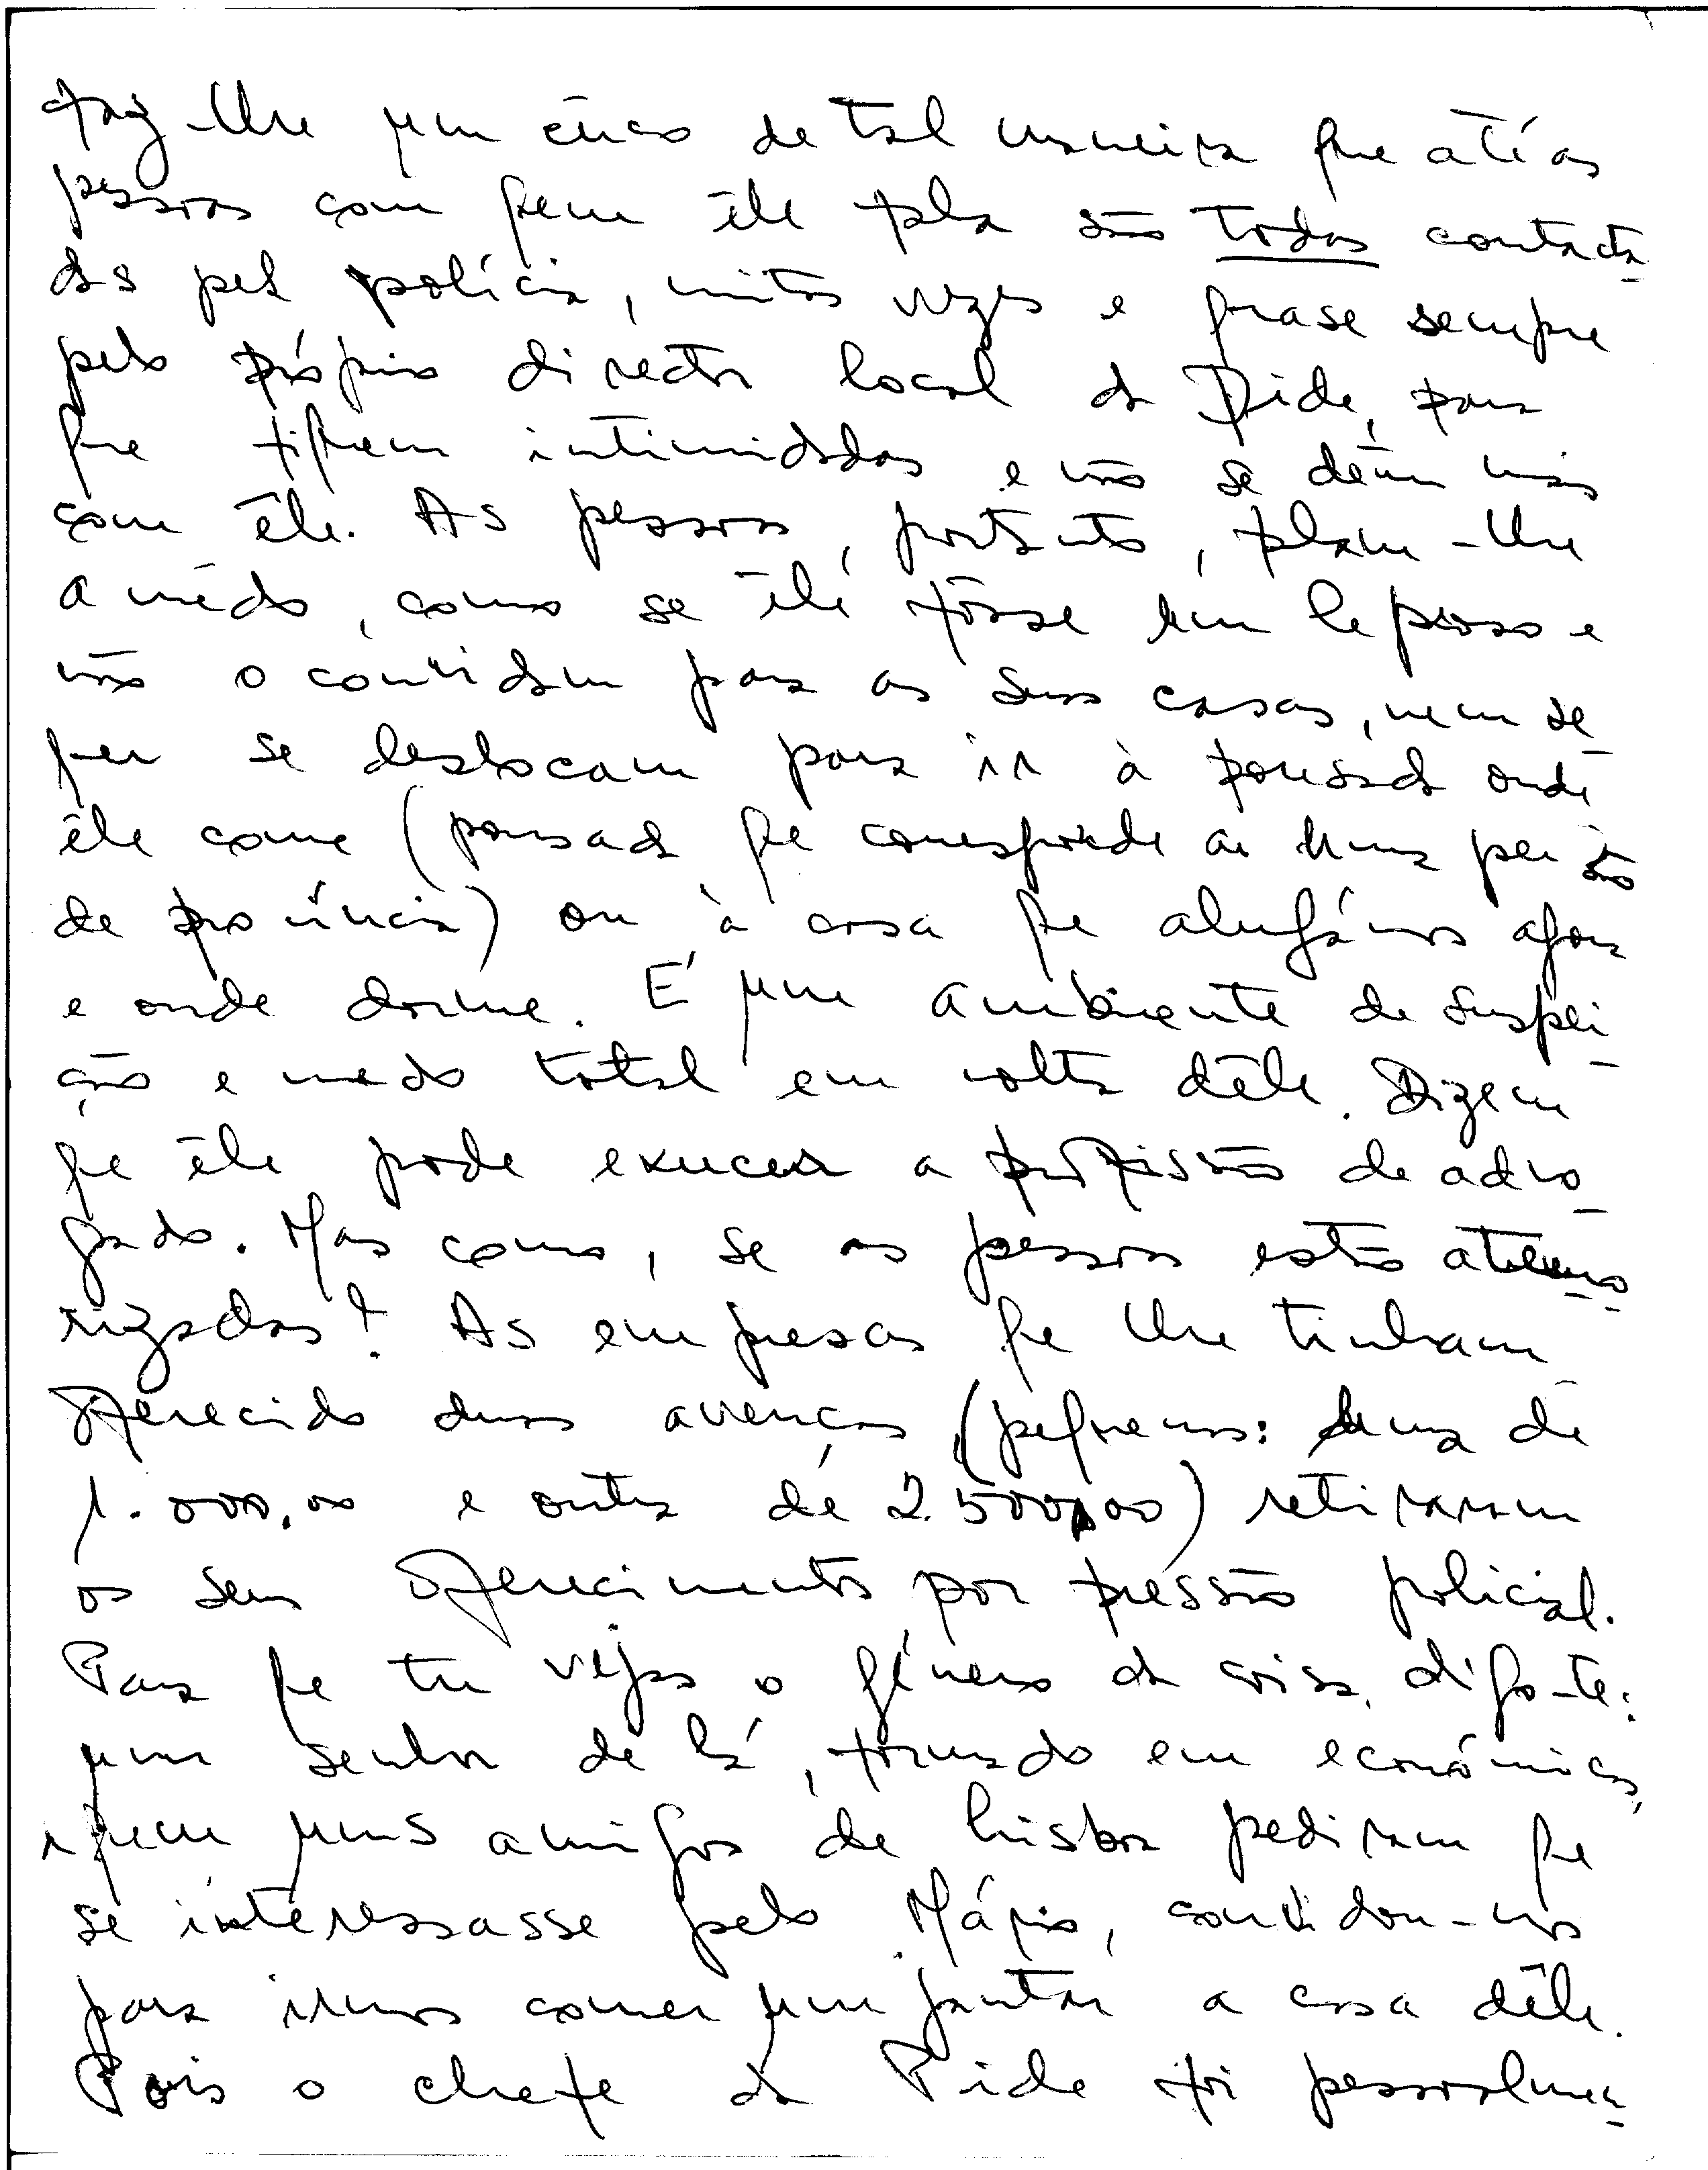 faz-lhe um cêrco de tal maneira que até as
pessoas com quem êle fala são todas contacta-
das pela polícia, muitas vezes e quase sempre
pelo próprio director local da Pide, para
que fiquem intimidadas e não se dêem mais
com êle. As pessoas, portanto, falam-lhe
a mêdo, como se êle fôsse um leproso e
não o convidam para as suas casas, nem se-
quer se deslocam para ir à pousada onde
êle come (pousada que corresponde aí uma pensão
de província) ou à casa que alugámos agora
e onde dorme. É um ambiente de suspei-
ção e medo total em volta dêle. Dizem
que êle pode exercer a profissão de advo-
gado. Mas como, se as pessoas estão atemo-
rizadas? As empresas que lhe tinham
oferecido duas avenças (pequenas: uma de
1.000,00 e outra de 2.500,00) retiraram
os seus oferecimentos por pressão policial.
Para que tu vejas o género da coisa, digo-te:
um senhor de lá, formado em económicas,
a quem uns amigos de Lisboa pediram que
se interessasse pelo Mário, convidou-nos
para irmos comer um jantar a casa dêle.
Pois o chefe da Pide foi pessoalmen-